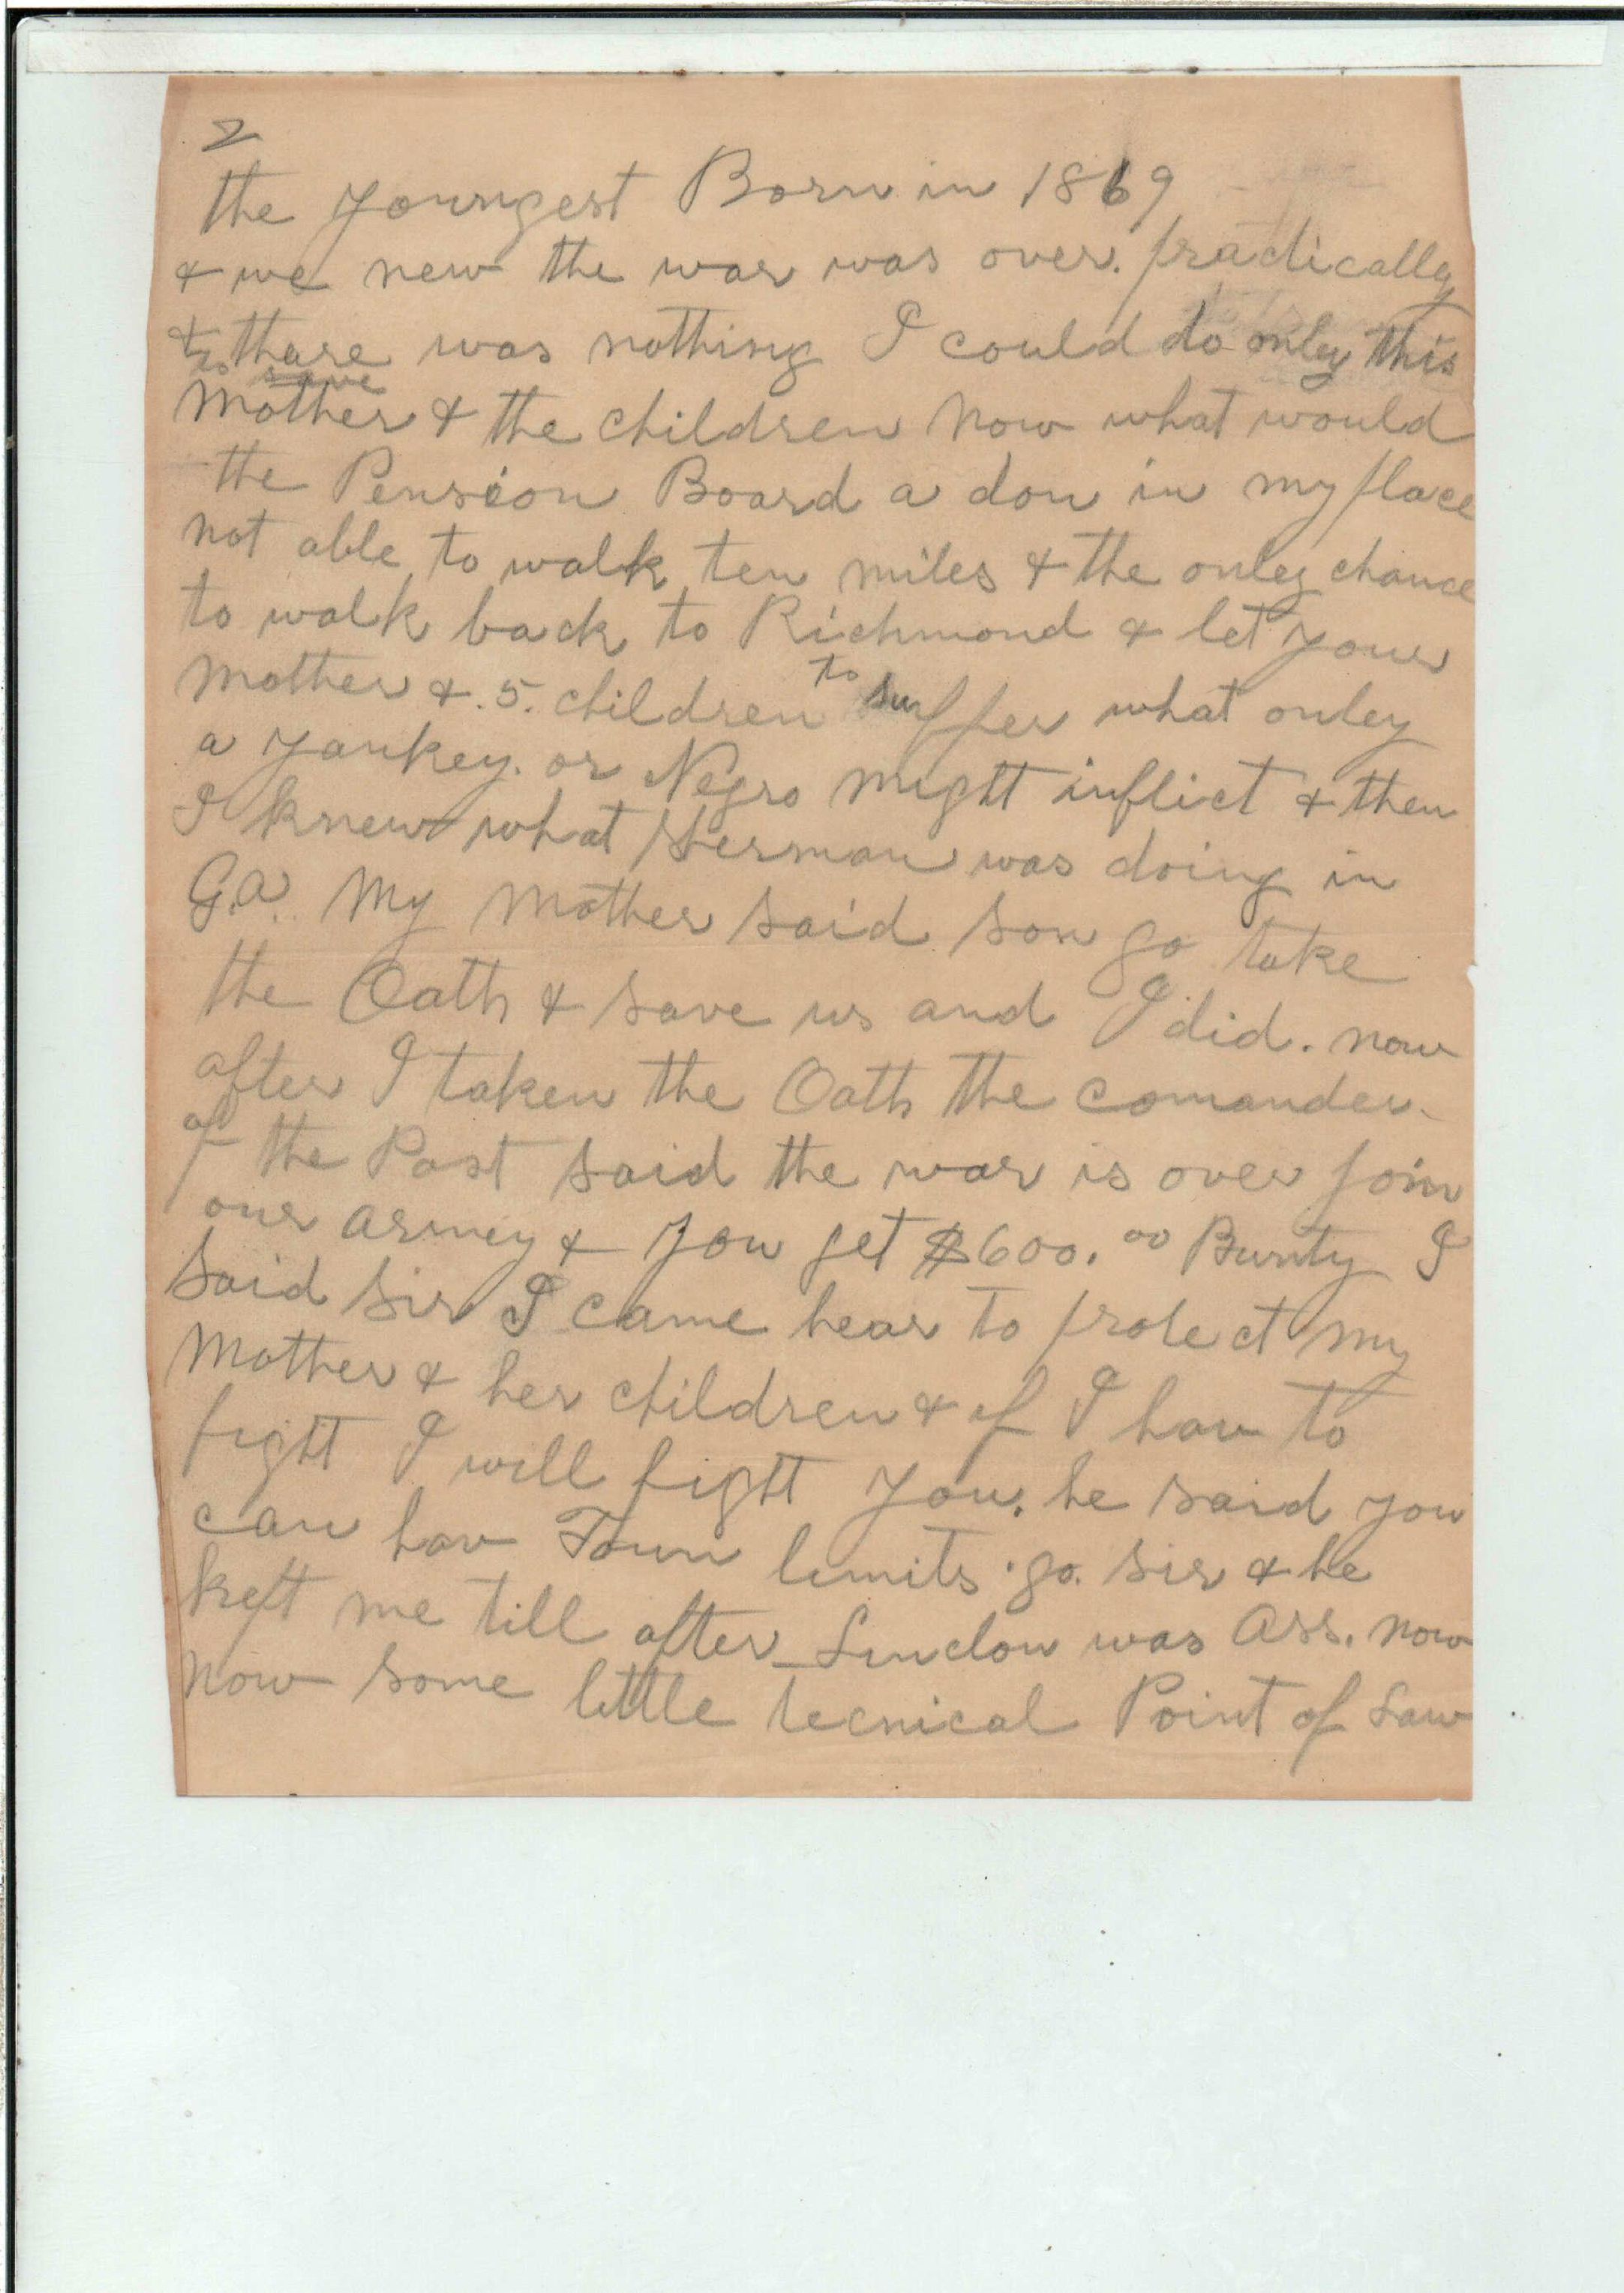 2
the youngest Born in 1869
& we new the war was over. practically
& thare was nothing I could do onley this
to save
Mother & the children Now what would
the Pension Board a don in my place
not able to walk ten miles & the onley chance
to walk back to Richmond & let your
Mother & .5. children to suffer what onley
a yankey. or Negro might inflict & then
I knew what Sherman was doing in
G.a. My Mother said son go take
the Oath & save us and I did. now
after I taken the Oath the comander
of the Post said the war is over join
our armey & you get $600.00 Bunty I
said sir I came hear to protect my
Mother & her children & if I hav to
fight I will fight you. he said you
can hav Town limits. go. sir & he
kept me till after Linclon was ass. now
now some little tecnical Point of Law